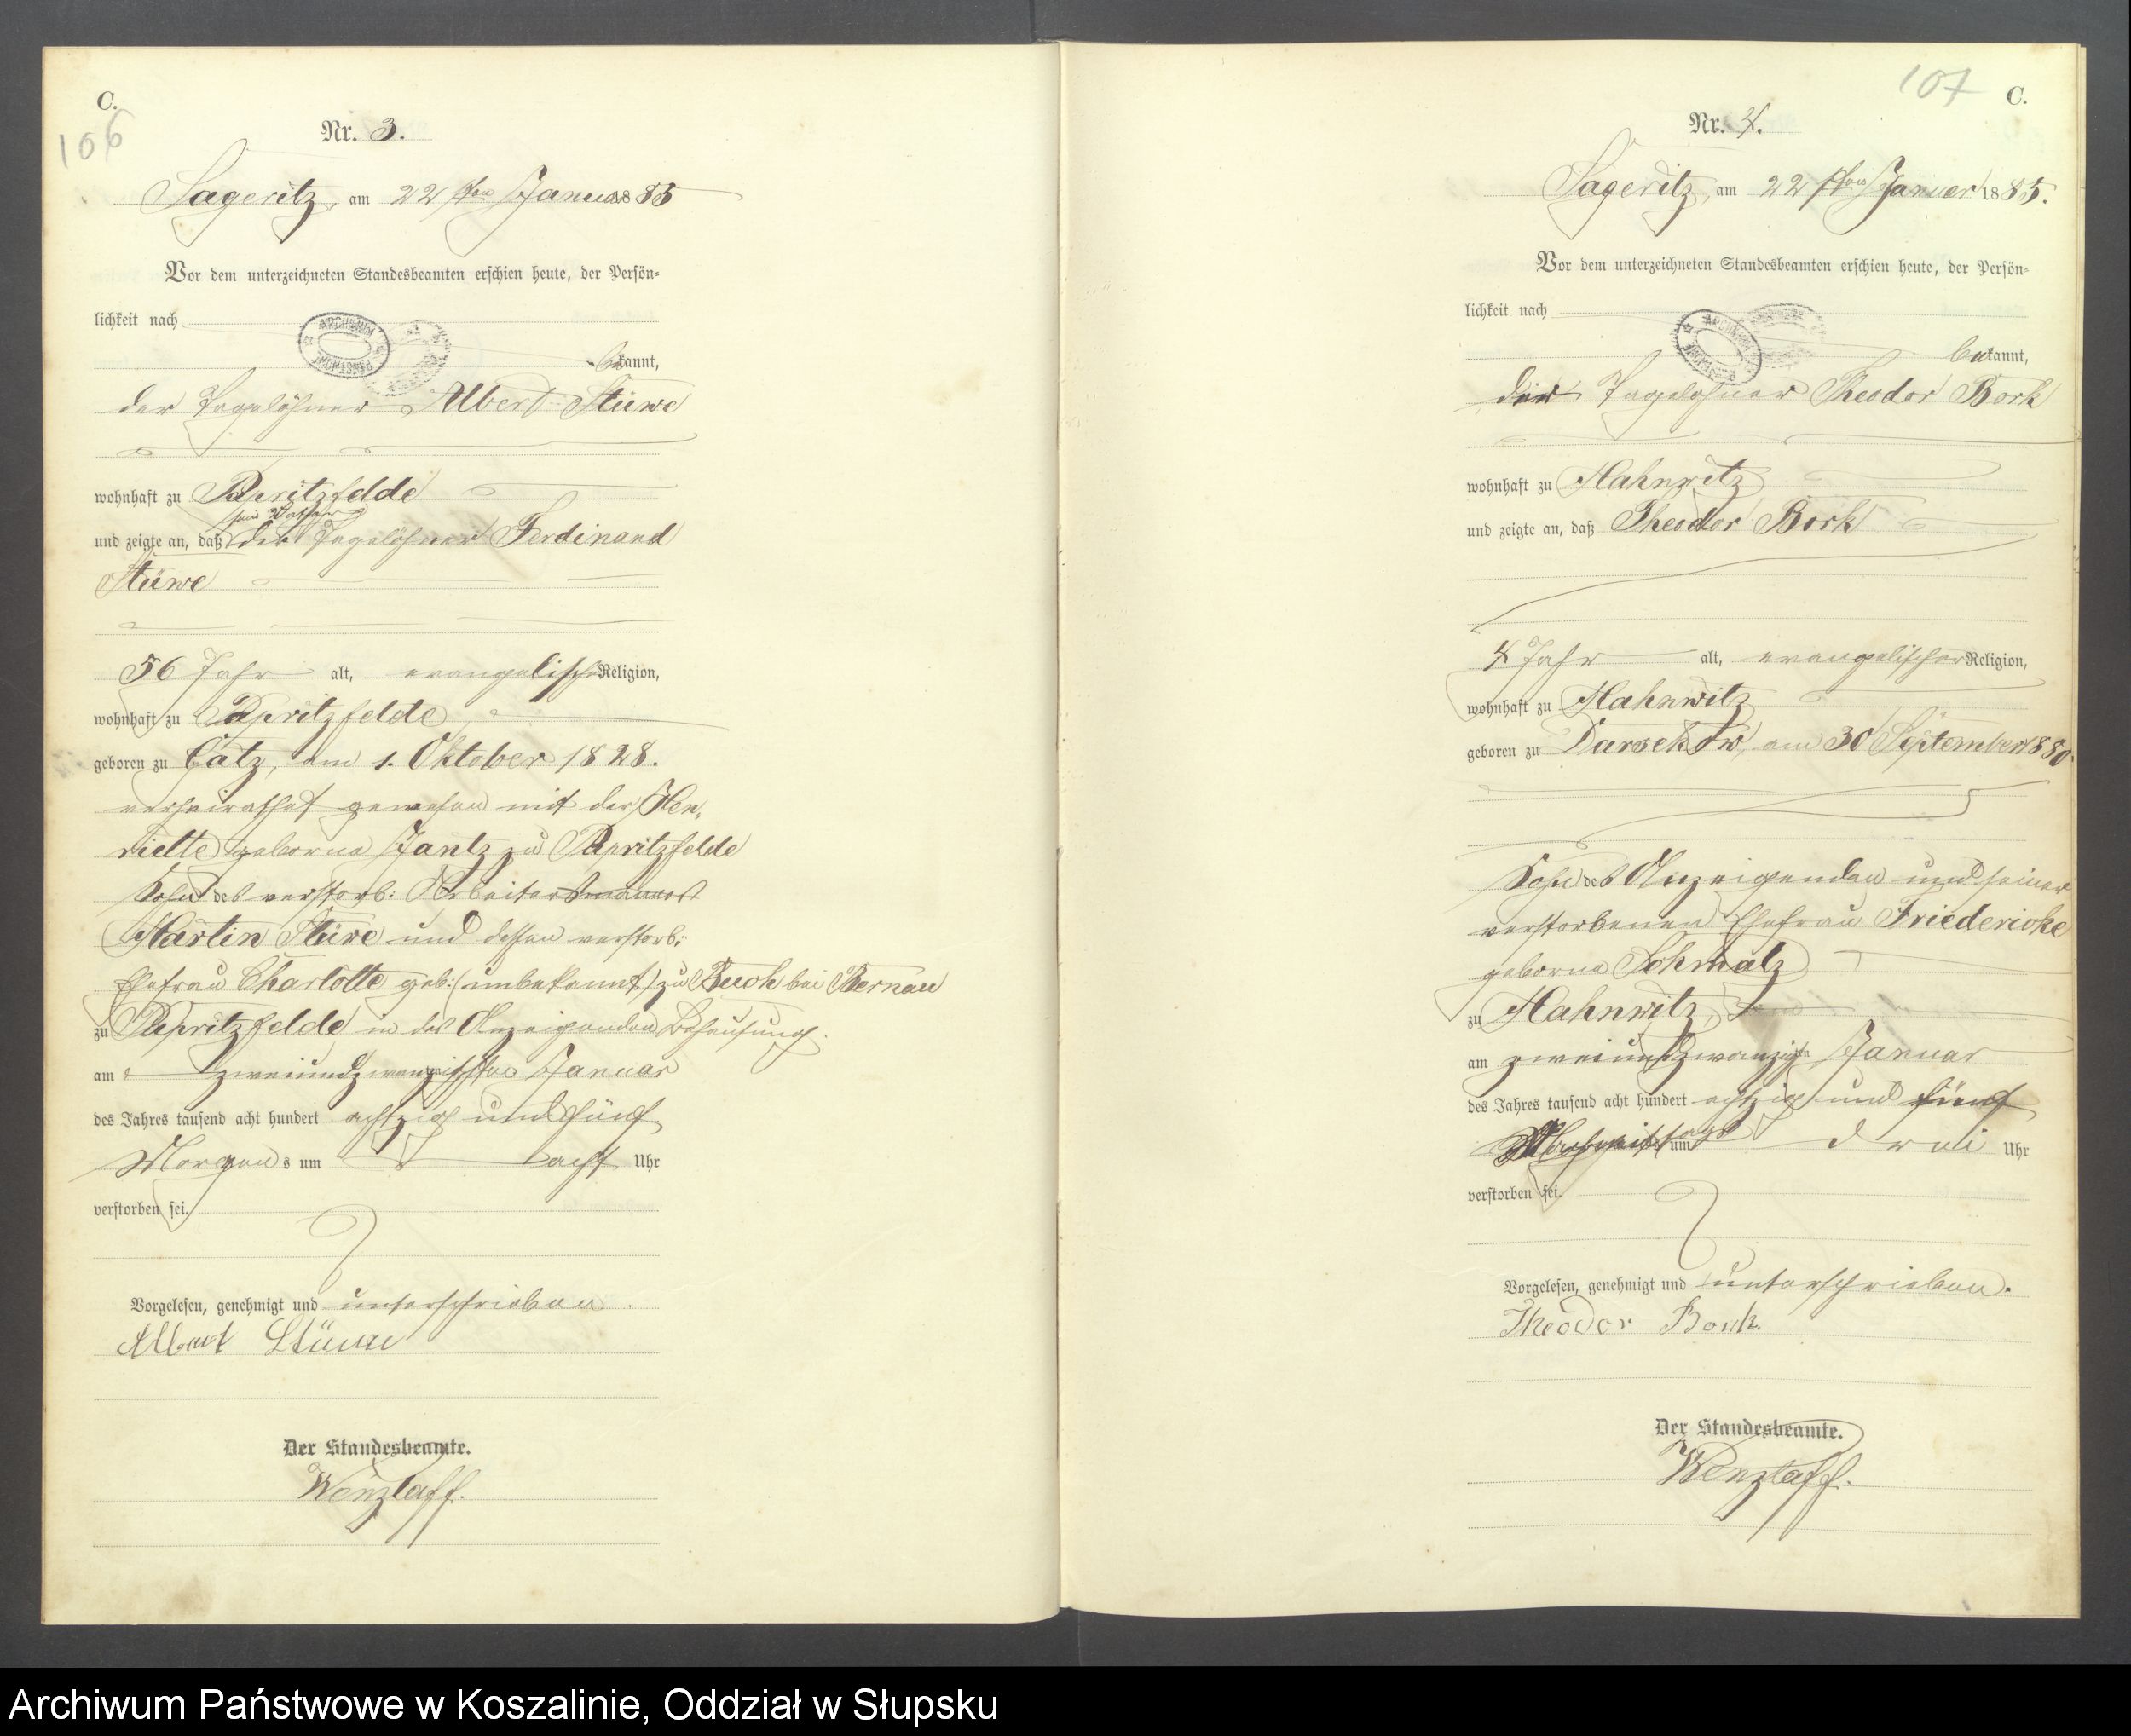 C.
106
Nr. 3.
Sageritz, am 22ten Januar 1885
Vor dem unterzeichneten Standesbeamten erschien heute, der Persön-
lichkeit nach
bekannt,
der Tagelöhner Albert Stüwe
wohnhaft zu Papritzfelde
sein Vather
und zeigte an, daß der Tagelöhner Ferdinand
Stüwe
56 Jahr alt, evangelischer Religion,
wohnhaft zu Papritzfelde
geboren zu Catz, am 1. Oktober 1828.
verheirathet gewesen mit der Hen-
riette geborne Jantz zu Papritzfelde
Sohn des verstorb: Arbeiter
Martin Stüwe und dessen verstorb:
Ehefrau Charlotte geb: (unbekannt) zu Buch bei Bernau
zu Papritzfelde in des Anzeigenden Behausung.
am zweiundzwanzigsten Januar
des Jahres tausend acht hundert achtzig und fünf
Morgens um acht Uhr
verstorben sei.
Vorgelesen, genehmigt und unterschrieben.
Albert Stüwe
Der Standesbeamte.
Wenzlaff.
107
C.
Nr. 4.
Sageritz, am 22ten Januar 1885.
Vor dem unterzeichneten Standesbeamten erschien heute, der Persön-
lichkeit nach
bekannt,
der Tagelöhner Theodor Bork
wohnhaft zu Hahnwitz
und zeigte an, daß Theodor Bork
4 Jahr alt, evangelischer Religion,
wohnhaft zu Hahnwitz
geboren zu Darsekow, am 30 September 1880
Sohn des Anzeigenden und seiner
verstorbenen Ehefrau Friedericke
geborne Schmalz
zu Hahnwitz,
am zweiundzwanzigsten Januar
des Jahres tausend acht hundert achtzig und fünf
um drei Uhr
verstorben sei.
Vorgelesen, genehmigt und unterschrieben.
Theodor Bork.
Der Standesbeamte.
Wenzlaff.
Archiwum Państwowe w Koszalinie, Oddział w Słupsku